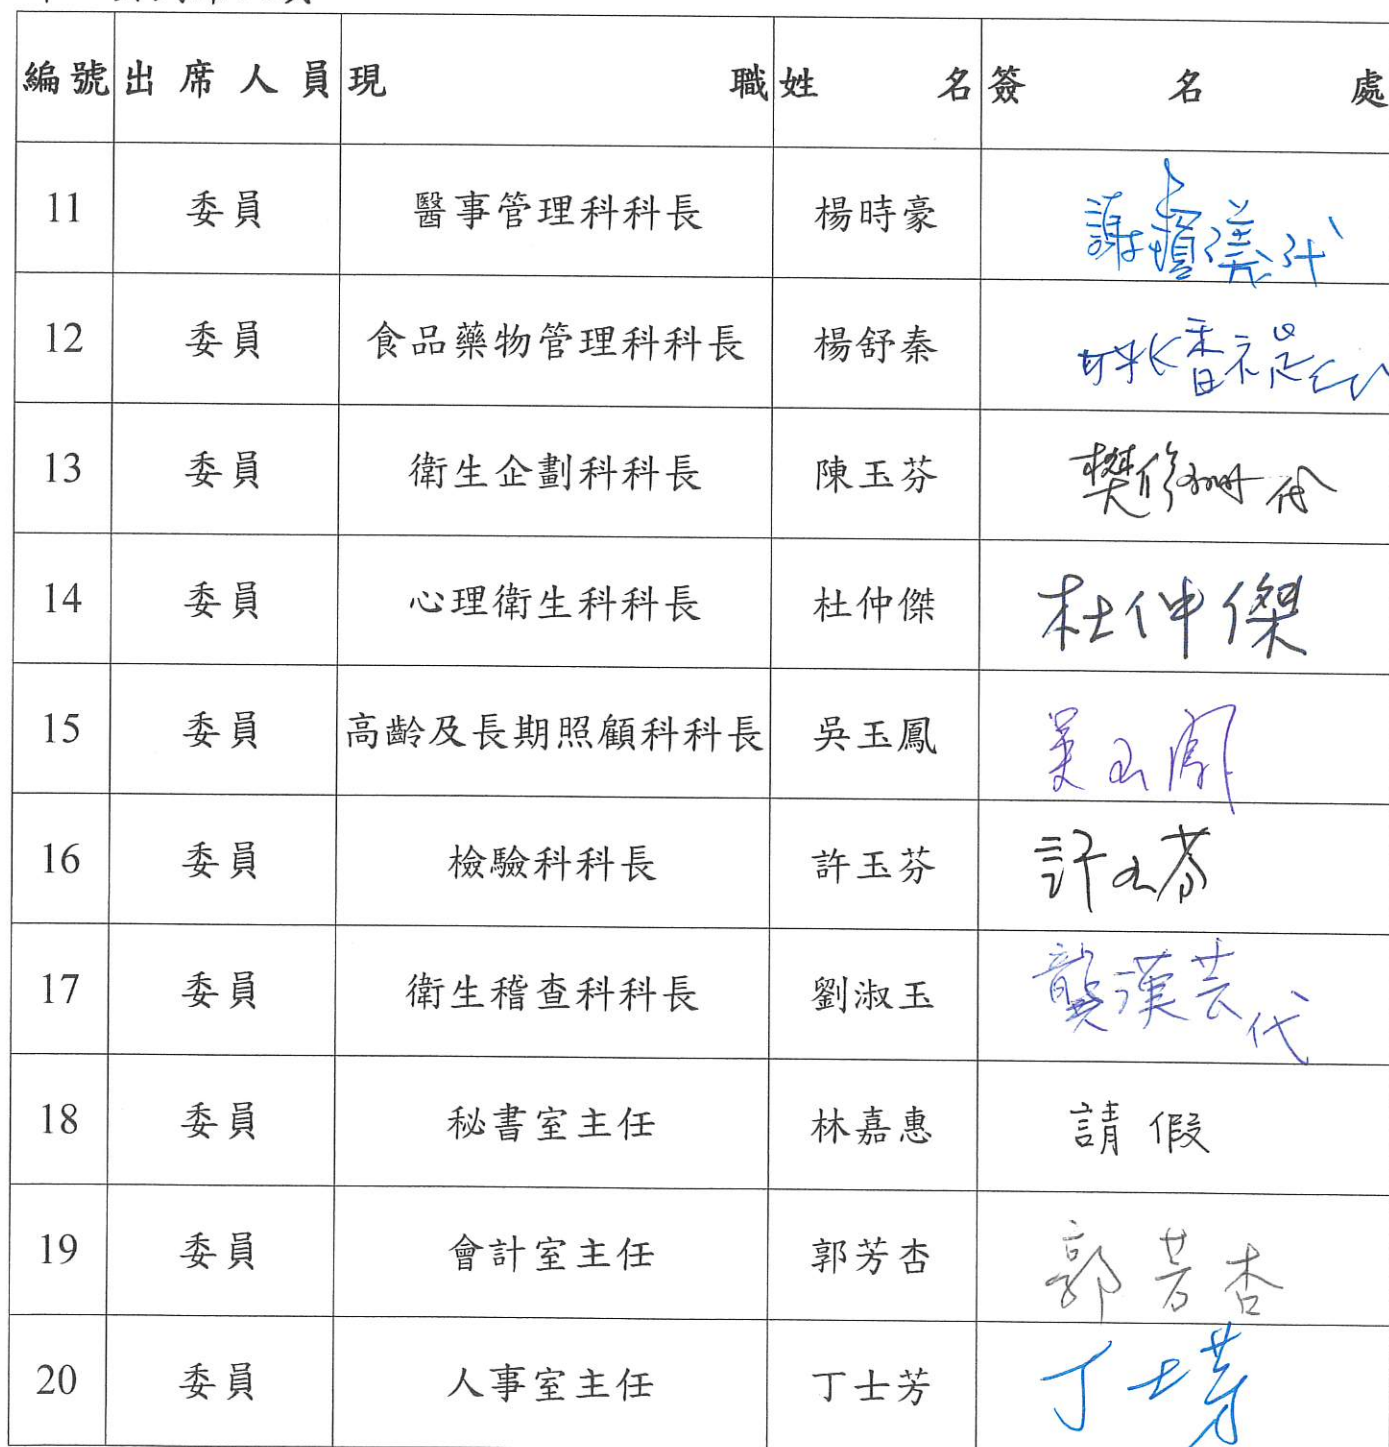 編號 出席人員 現職 姓名 簽名處
11 委員 醫事管理科科長 楊時豪 謝 儀代
12 委員 食品藥物管理科科長 楊舒秦 香
13 委員 衛生企劃科科長 陳玉芬 樊修 代
14 委員 心理衛生科科長 杜仲傑 杜仲傑
15 委員 高齡及長期照顧科科長 吳玉鳳 吳玉鳳
16 委員 檢驗科科長 許玉芬 許玉芬
17 委員 衛生稽查科科長 劉淑玉 龔漢芸代
18 委員 秘書室主任 林嘉惠 請假
19 委員 會計室主任 郭芳杏 郭芳杏
20 委員 人事室主任 丁士芳 丁士芳